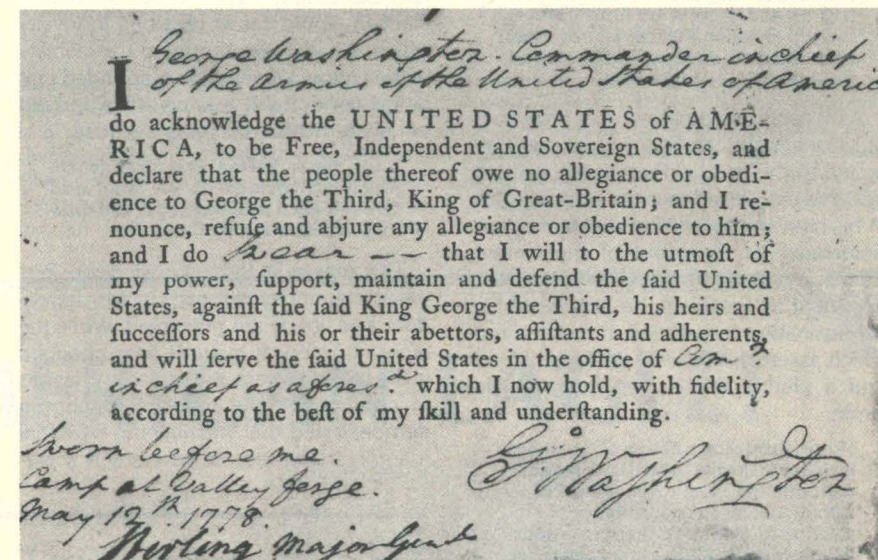 I George Washington. Commander in chief
of the Armies of the United States of Americ
do acknowledge the UNITED STATES of AME-
RICA, to be Free, Independent and Sovereign States, and
declare that the people thereof owe no allegiance or obedi-
ence to George the Third, King of Great-Britain; and I re-
nounce, refuſe and abjure any allegiance or obedience to him;
and I do Swear —— that I will to the utmoſt of
my power, ſupport, maintain and defend the ſaid United
States, againſt the ſaid King George the Third, his heirs and
ſucceſſors and his or their abettors, aſſiſtants and adherents,
and will ſerve the ſaid United States in the office of Comr.
in chief as aforesd. which I now hold, with fidelity,
according to the beſt of my ſkill and underſtanding.
Sworn before me.
Camp at Valley forge.
May 12th 1778.
Stirling Major Genl
G:Washington